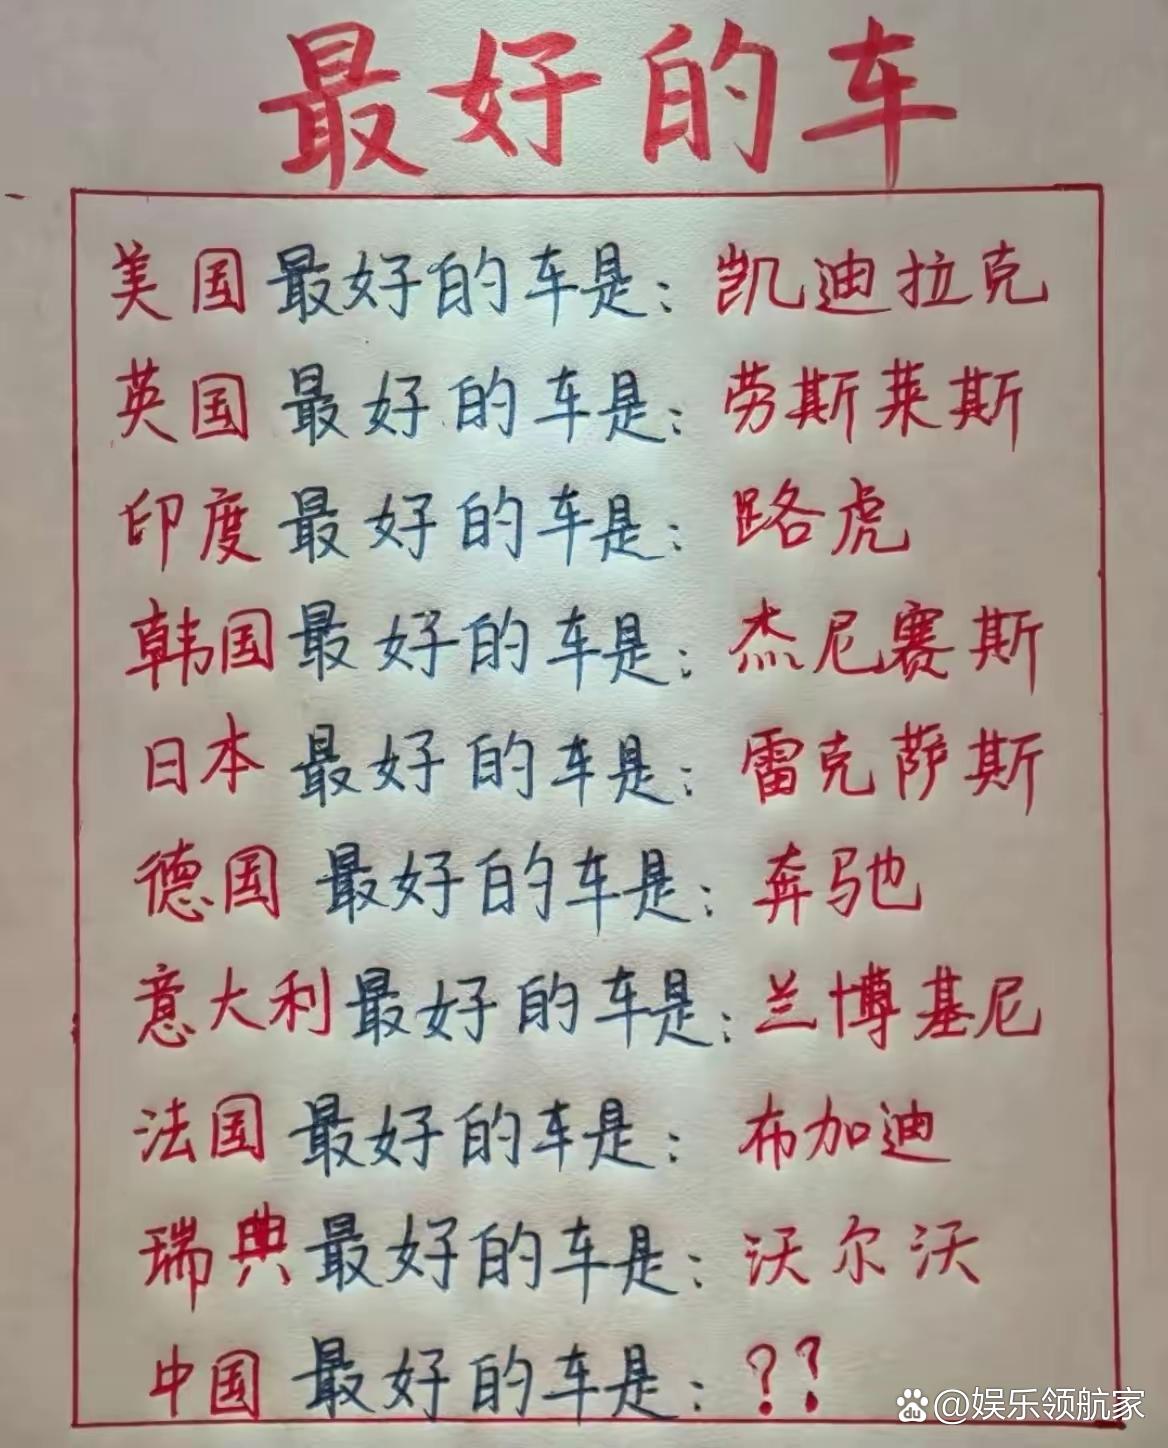 最好的车
美国最好的车是：凯迪拉克
英国最好的车是：劳斯莱斯
印度最好的车是：路虎
韩国最好的车是：杰尼赛斯
日本最好的车是：雷克萨斯
德国最好的车是：奔驰
意大利最好的车是：兰博基尼
法国最好的车是：布加迪
瑞典最好的车是：沃尔沃
中国最好的车是：？？
@娱乐领航家